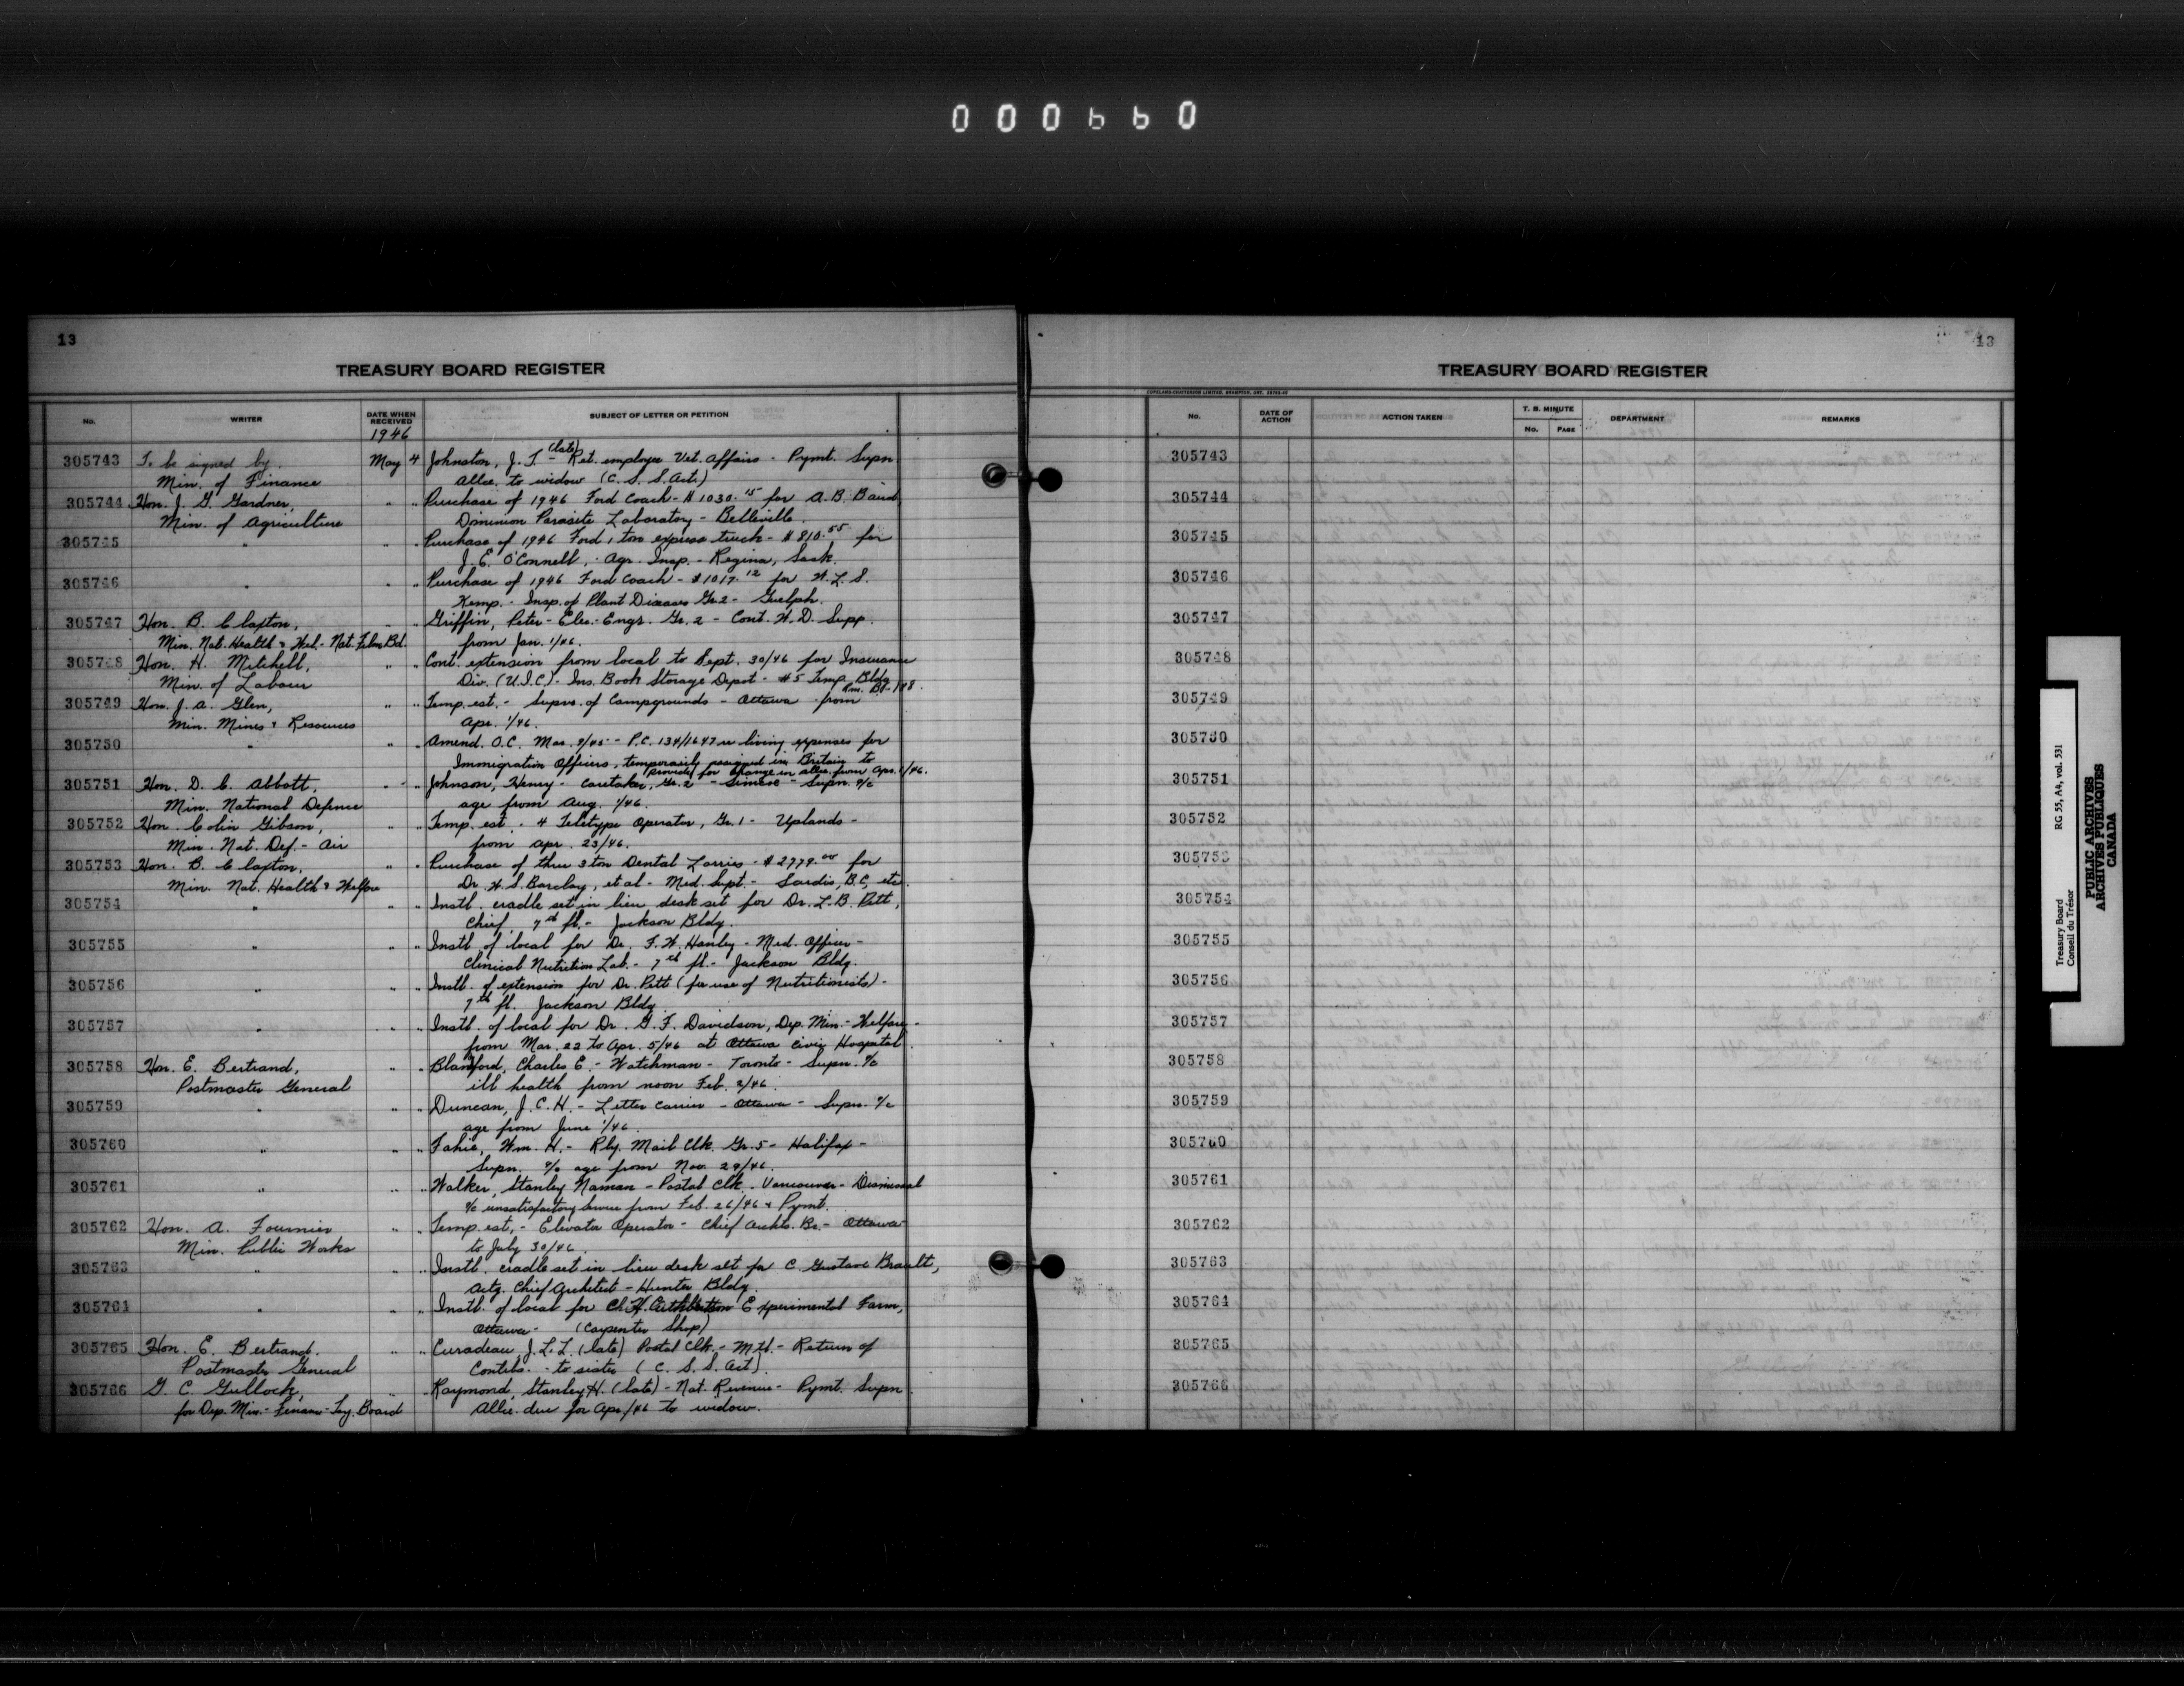 000660
13
TREASURY BOARD REGISTER
No. WRITER DATE WHEN RECEIVED SUBJECT OF LETTER OR PETITION
1946
305743 To be signed by May 4 Johnston, J. T. - (late) Ret. employee Vet. Affairs - Pymt. Supn.
Min. of Finance Allce. to widow (C. S. S. Act.)
305744 Hon. J. G. Gardner, " " Purchase of 1946 Ford Coach - $1030.15 for A. B. Baird,
Min. of Agriculture Dominion Parasite Laboratory - Belleville.
305745 " " " Purchase of 1946 Ford 1 ton express truck - $810.55 for
J. E. O'Connell, - Agr. Insp. - Regina, Sask.
305746 " " " Purchase of 1946 Ford Coach - $1017.12 for W. L. S.
Kemp. - Insp. of Plant Diseases Gr. 2 - Guelph.
305747 Hon. B. Claxton, " " Griffin, Peter - Elec. Engr. Gr. 2 - Cont. W. D. Supp.
Min. Nat. Health & Wel. - Nat. Film Bd. from Jan. 1/46.
305748 Hon. H. Mitchell, " " Cont. extension from local to Sept. 30/46 for Insurance
Min. of Labour Div. (U.I.C.) - Ins. Book Storage Depot - #5 Temp. Bldg.
305749 Hon. J. A. Glen, " " Temp. est. - Supvr. of Campgrounds - Ottawa - from
Min. Mines & Resources Apr. 1/46.
305750 " " " Amend. O.C. Mar. 9/45 - P.C. 134/1647 re living expenses for
Immigration Officers, temporarily assigned in Britain to
provide for change in allce. from Apr. 1/46.
305751 Hon. D. C. Abbott, " " Johnson, Henry - Caretaker, Gr. 2 - Simcoe - Supn. a/c
Min. National Defence age from Aug. 1/46.
305752 Hon. Colin Gibson, " " Temp. est. - 4 Teletype Operator, Gr. 1 - Uplands -
Min. Nat. Def. - Air from Apr. 23/46.
305753 Hon. B. Claxton, " " Purchase of three 3 ton Dental Lorries - $2779.00 for
Min. Nat. Health & Welfare Dr. W. S. Barclay, et al - Med. Supt. - Sardis, B.C., etc.
305754 " " " Instl. cradle set in lieu desk set for Dr. L. B. Pett,
Chief, 7th fl. - Jackson Bldg.
305755 " " " Instl. of local for Dr. F. W. Hanley - Med. Officer -
Clinical Nutrition Lab. - 7th fl. - Jackson Bldg.
305756 " " " Instl. of extension for Dr. Pett (for use of Nutritionists) -
7th fl. Jackson Bldg.
305757 " " " Instl. of local for Dr. G. F. Davidson, Dep. Min. - Welfare -
from Mar. 22 to Apr. 5/46 at Ottawa Civic Hospital.
305758 Hon. E. Bertrand, " " Blandford, Charles E. - Watchman - Toronto - Supn. a/c
Postmaster General ill health from noon Feb. 2/46.
305759 " " " Duncan, J. C. H. - Letter Carrier - Ottawa - Supn. a/c
age from June 1/46.
305760 " " " Fahie, Wm. H. - Rly. Mail Clk. Gr. 5 - Halifax -
Supn. a/c age from Nov. 29/46.
305761 " " " Walker, Stanley Naman - Postal Clk. - Vancouver - Dismissal
a/c unsatisfactory service from Feb. 26/46 & Pymt.
305762 Hon. A. Fournier " " Temp. est. - Elevator Operator - Chief Archts. Br. - Ottawa
Min. Public Works to July 30/46.
305763 " " " Instl. cradle set in lieu desk set for C. Gustave Brault,
Actg. Chief Architect - Hunter Bldg.
305764 " " " Instl. of local for Experimental Farm,
Ottawa - (Carpenter Shop)
305765 Hon. E. Bertrand. " " Curadeau J. L. L. (late) Postal Clk. - Mtl. - Return of
Postmaster General Contbs. - to sister (C. S. S. Act).
305766 G. C. Gullock, " " Raymond, Stanley H. (late) - Nat. Revenue - Pymt. Supn.
for Dep. Min. - Finance - Trsy. Board Allce. due for Apr/46 to widow.
13
TREASURY BOARD REGISTER
COPELAND-CHATTERSON LIMITED, BRAMPTON, ONT.
No. DATE OF ACTION ACTION TAKEN T. B. MINUTE DEPARTMENT REMARKS
No. PAGE
305743
305744
305745
305746
305747
305748
305749
305750
305751
305752
305753
305754
305755
305756
305757
305758
305759
305760
305761
305762
305763
305764
305765
305766
Treasury Board RG 55, A4, vol. 531
Conseil du Trésor
PUBLIC ARCHIVES
ARCHIVES PUBLIQUES
CANADA